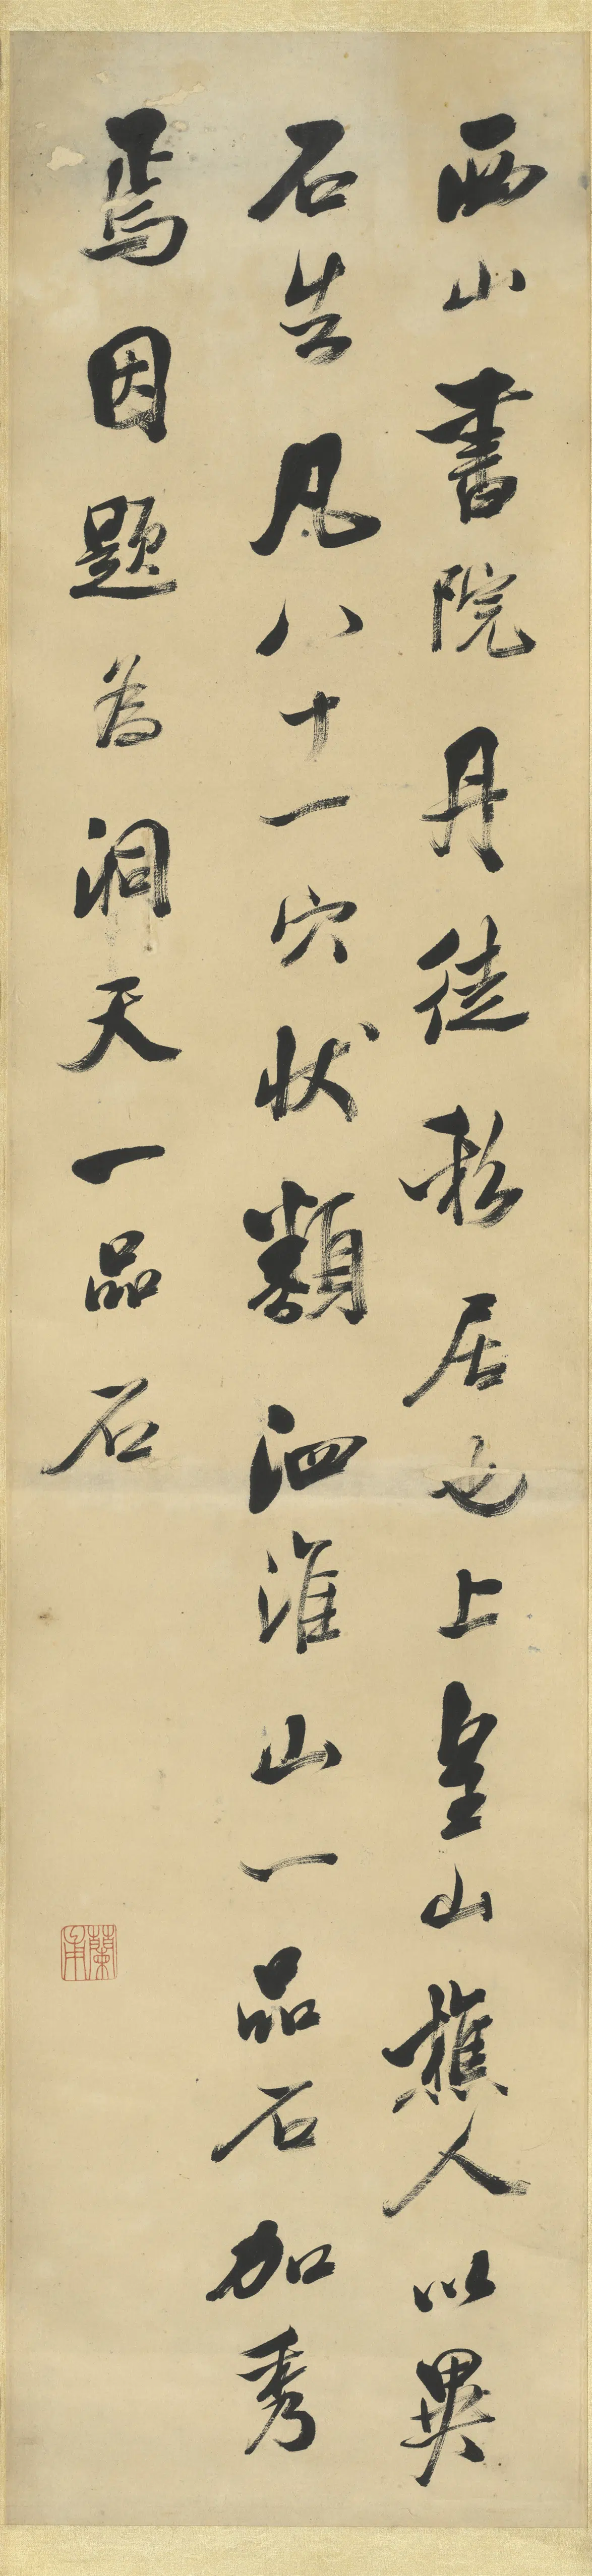 西山書院丹徒私居也上皇山樵人以異
石告凡八十一穴状類泗淮山一品石加秀
焉因題為洞天一品石
蘭甫